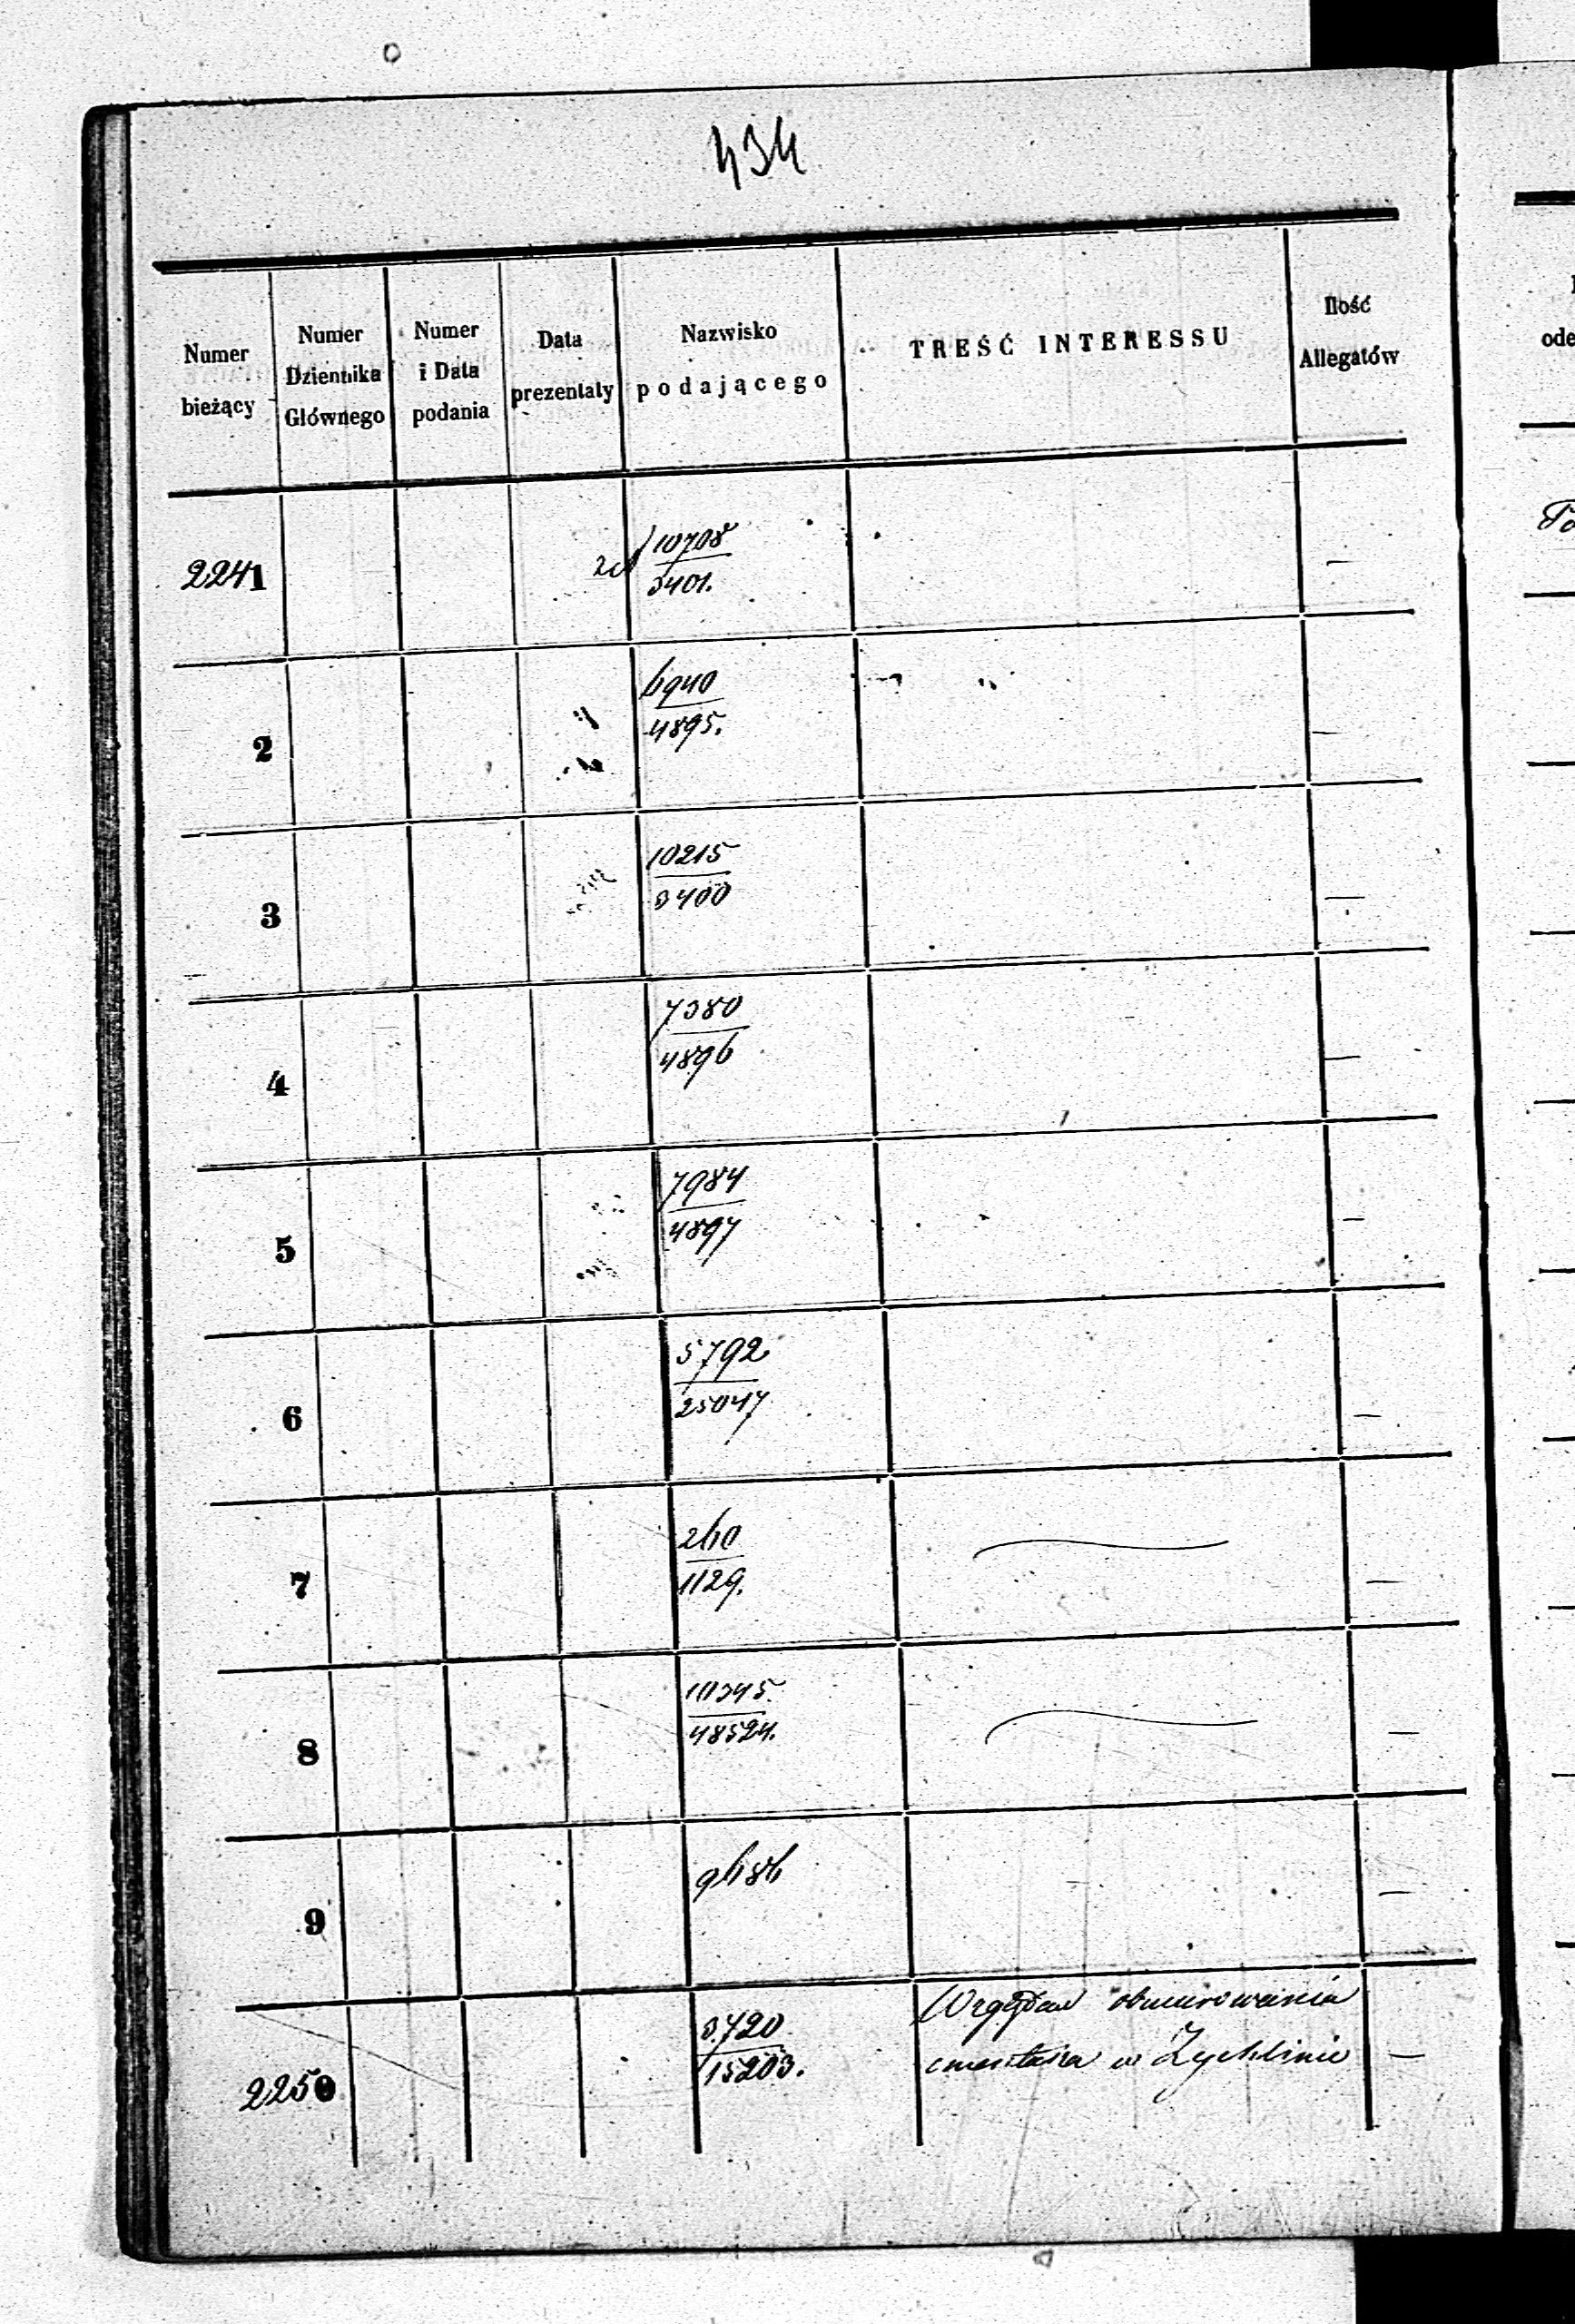 434
Numer bieżący
Numer Dziennika Głównego
Numer i Data podania
Data prezentaty
Nazwisko podającego
TREŚĆ INTERESSU
Ilość Allegatów
2241
10708
3401.
—
2
6940
4895.
—
3
10215
3400
—
4
7380
4896
—
5
7984
4897
—
6
5792
25047
—
7
260
1129.
—
8
10345
48524.
—
9
9686
—
2250
3720
15203.
Względem obmurowania
cmentarza w Żychlinie
—